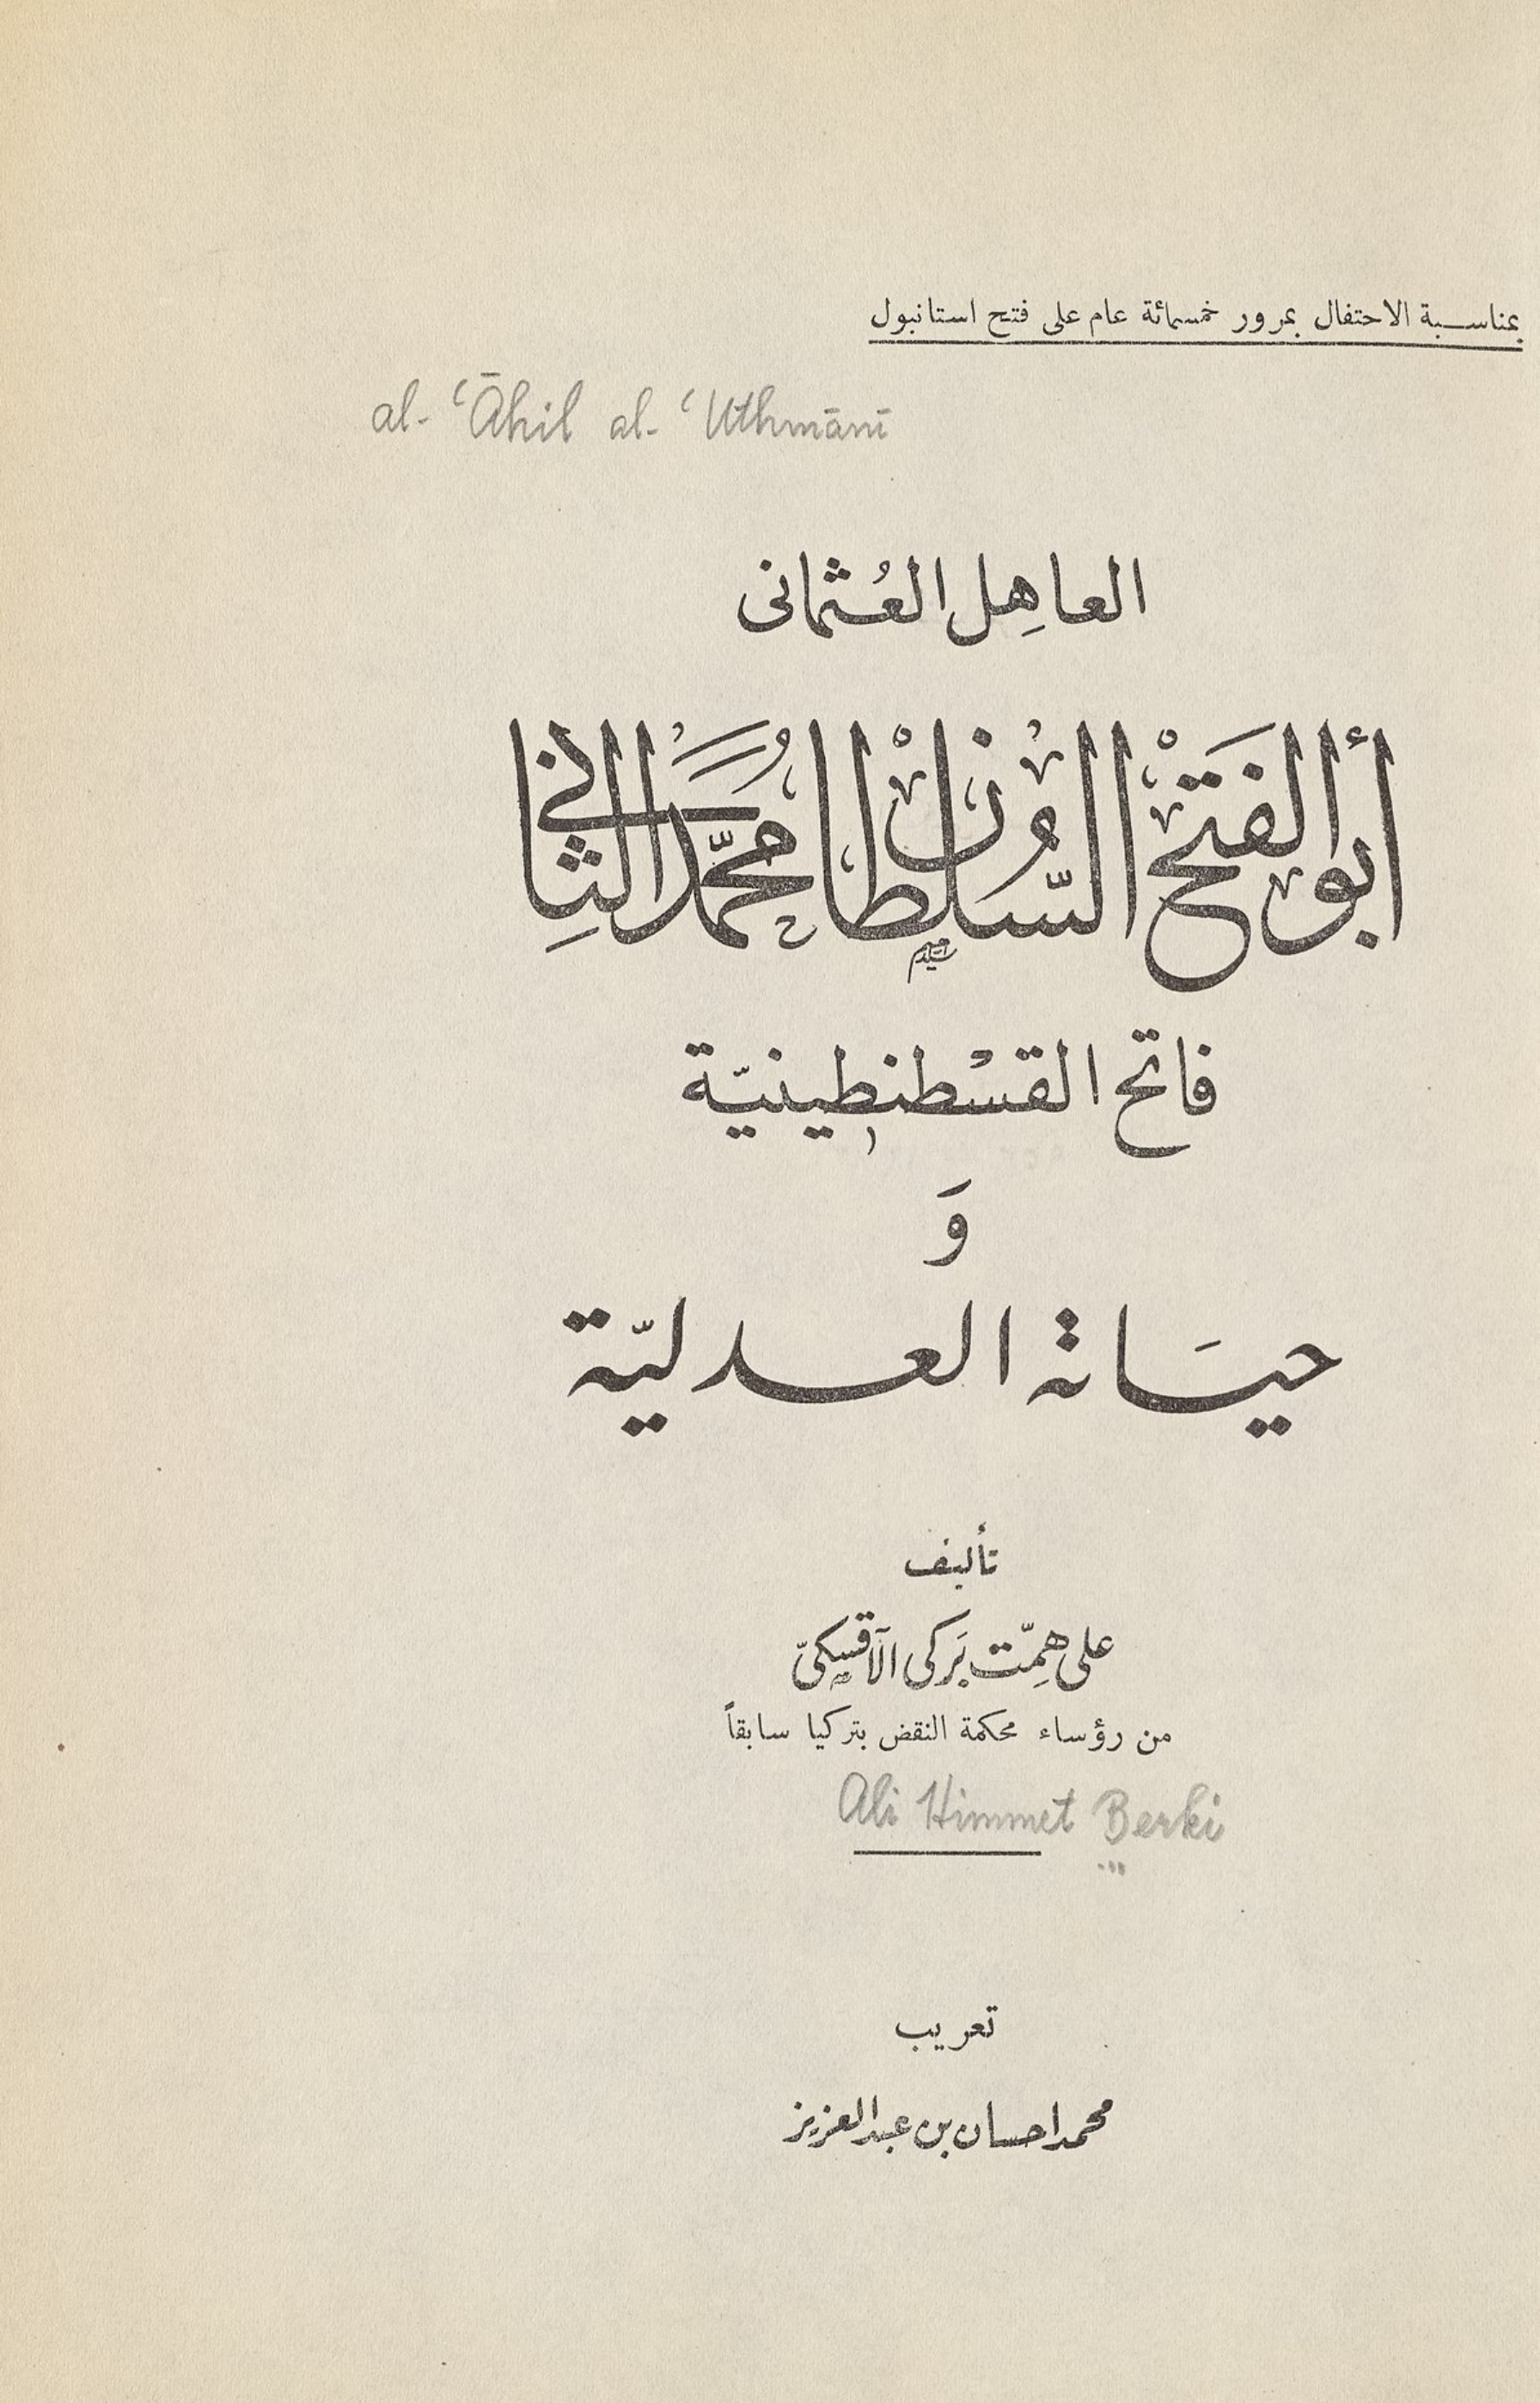 بمناسبة الاحتفال بمرور خمسمائة عام على فتح استانبول
al-ʿĀhil al-ʿUthmānī
العاهِل العُثمانى
أبو الفَتْح السُّلْطان محُمَّد الثاني
فاتح القسْطنطينيّة
وَ
حيَاة العدليّة
تأليف
على هِمّت بَركى الآقسكىّ
من رؤساء محكمة النقض بتركيا سابقاً
Ali Himmet Berki
تعريب
محمد احسان بن عبد العزيز